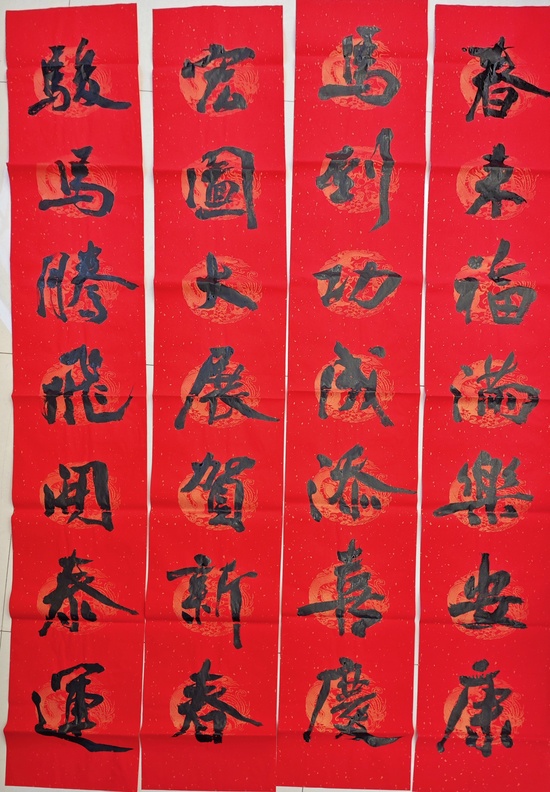 駿馬騰飛開泰運
宏圖大展賀新春
馬到功成添喜慶
春来福滿樂安康